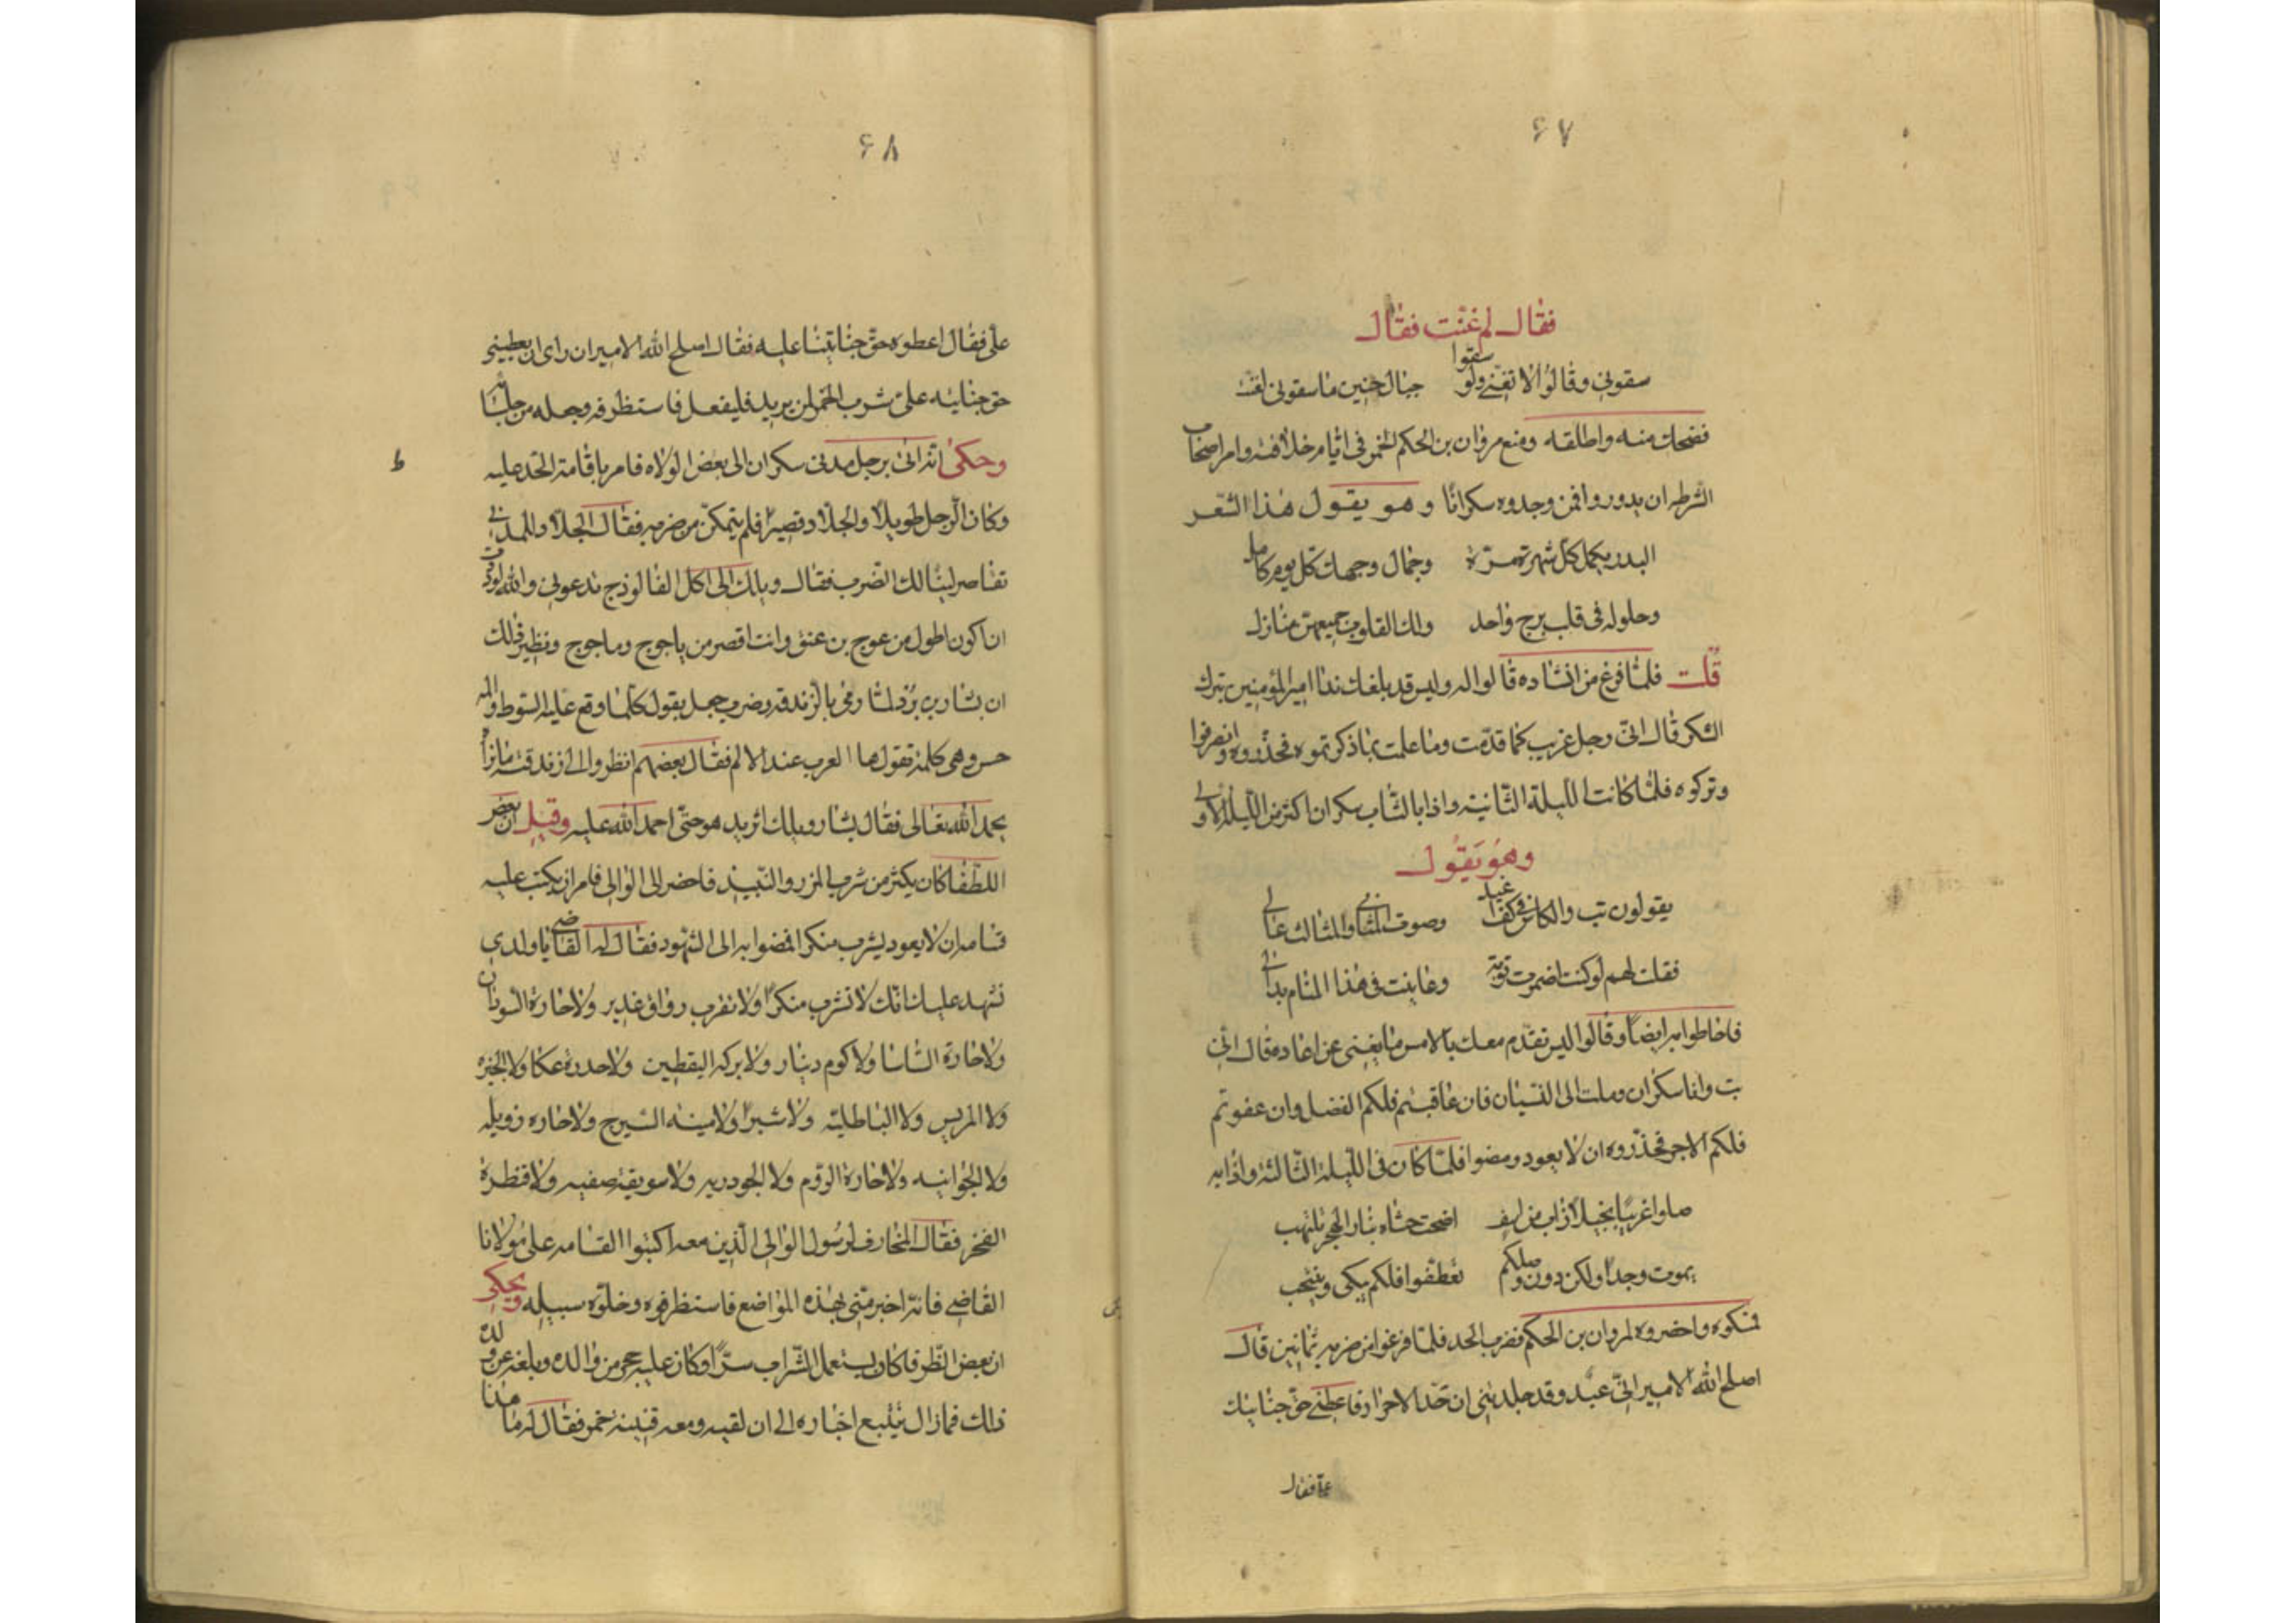 ٦٧
فقال لم غنيت فقال
سقوني وقالوا لا تغني ولو سقوا جبال حنين ما سقوني لغنت
فضحك منه واطلقه ومنع مروان بن الحكم الخمر في ايام خلافته وامر اصحاب
الشرطه ان يدوروا فمن وجدوه سكرانا وهو يقول هذا الشعر
البدر يكمل كل شهر مرة وجمال وجهك كل يوم كامل
وحلوله في قلب برج واحد ولك القلوب جميعهن منازل
قلت فلما فرغ من انشاده قالوا له وليس قد بلغك ندا امير المؤمنين بترك
السكر قال اني رجل غريب كما قدمت وما علمت بما ذكرتموه فحذروه وانصرفوا
وتركوه فلما كانت الليلة الثانية واذا بالشاب سكران اكثر من الليلة الاولى
وهو يقول
يقولون تب والكاس في كف اغيد وصوت المثاني والمثالث عالي
فقلت لهم لو كنت اضمرت توبة وعاينت في هذا المنام بدالي
فاحاطوا به ايضا وقالوا اليس تقدم معك بالامس ما يغني عن اعاده قال اني
بت وانا سكران وملت الى النسيان فان عاقبتم فلكم الفضل وان عفوتم
فلكم الاجر فحذروه ان لا يعود ومضوا فلما كان في الليلة الثالثة واذا به
صلوا غريبا اضحت حشاه بنار الهجر تلتهب
يموت وجدا ولكن دون وصلكم تعطفوا فلكم يبكى وينتحب
فمسكوه واحضروه لمروان بن الحكم فضرب الحد فلما فرغوا من ضربه ثمانين قال
اصلح الله الامير اني عبد وقد جلدتني ان حد الاحرار فاعطني حق جنايتك
علي فقال
٦٨
علي فقال اعطوه حق جنايتنا عليه فقال اصلح الله الامير ان راى ان يعطيني
حق جنايته على شرب الخمر لمن يريد فليفعل فاستظرفه وجعله من جلسائه
وحكى انه اتى برجل مدني سكران الى بعض الولاه فامر باقامة الحد عليه
وكان الرجل طويلا والجلاد قصيرا فلم يتمكن من ضربه فقال الجلاد للمدني
تقاصر لينالك الضرب فقال ويلك الى اكل الفالوذج تدعوني والله لوددت
ان اكون اطول من عوج بن عنق وانت اقصر من ياجوج وماجوج ونظير ذلك
ان بشار بن برد لما رمي بالزندقه وضرب جعل يقول كلما وقع عليه السوط والمه
حس وهي كلمة تقولها العرب عند الالم فقال بعضهم انظروا الى زندقته ما نراه
يحمد الله تعالى فقال بشار ويلك اثريد هو حتى احمد الله عليه وقيل ان بعض
اللطفا كان يكثر من شرب المزر والنبيذ فاحضر الى الوالي فامر ان يكتب عليه
قسامه ان لا يعود يشرب منكرا فمضوا به الى الشهود فقال له القاضي يا ولدي
نشهد عليك انك لا تشرب منكرا ولا تقرب رواق غدير ولا حارة السودان
ولا حارة الشاشا ولا كوم دينار ولا بركه اليقطين ولا حدرة عكا ولا الجيزه
ولا المريس ولا الباطلية ولا شبرا ولا مينه السيرج ولا حاره زويله
ولا الجوانيه ولا حارة الروم ولا الجودريه ولا سويقة صفيه ولا قنطرة
الفخر فقال المخارف لرسول الوالي الذين معه اكتبوا القسامه على مولانا
القاضي فانه اخبر مني بهذه المواضع فاستظرفوه وخلوه سبيله ويحكى
ان بعض الظرفا كان يستعمل الشراب سرا وكان عليه حجر من والده وبلغه عن ولده
ذلك فما زال يتتبع اخباره الى ان لقيه ومعه قنينة خمر فقال له ما هذا